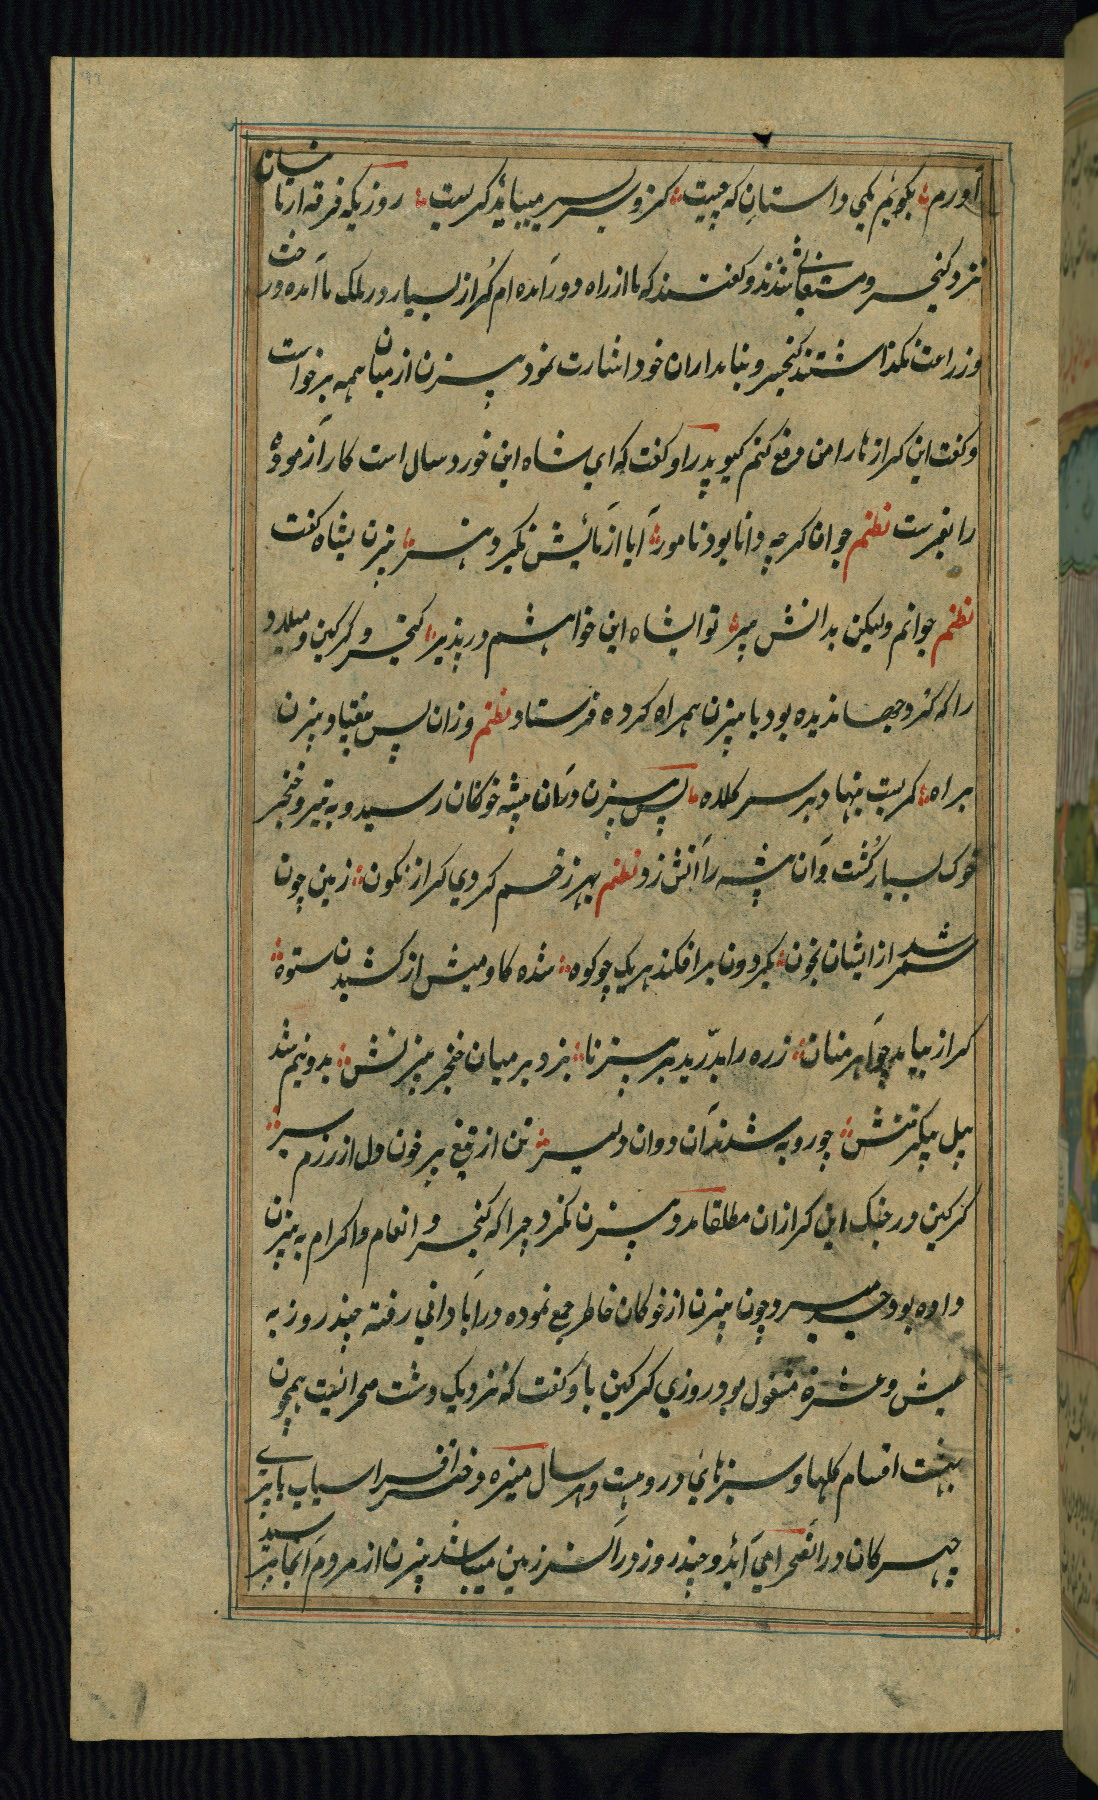 آورم بگویم یکی داستان که چیست کزو بر سر میباید گریست روزیکه فرقه ارمانیان
نزد کیخسرو متغاثی شدند و گفتند که ما از راه دور آمده ام گراز بسیار در ملک ما آمده درخت
و زراعت نگذاشتند کیخسرو بنامداران خود اشارت نمود بیزن از میان همه برخواست
و گفت این گرازها را من مرفع کنم گیو پدر او گفت که ای شاه این خورد سال است کار آزموده
را بفرست نظم جوان گرچه دانا بود نامور ابا آزمایش نگیرد هنر بیزن بشاه گفت
نظم جوانم ولیکن بدانش پیر تو ایشاه این خواهشم در پذیر کیخسرو گرگین میلاد
را که گرد جهاندیده بود با بیزن همراه کرده فرستاد نظم وزان پس بیفتاد بیزن
براه کمر بست بنهاد بر سر کلاه پس بیزن در آن بیشه خوکان رسید و به تیر و خنجر
خوک بسیار کشت و آن بیشه را آتش زد نظم بهر زخم کردی گراز نگون زمین چون
شمر شد از ایشان بخون بگردون بر افکند هر یک چو کوه شده گاومیش از کشیدن ستوه
گراز بیامد چو اهرمنان زره را بدرید بر بیزنا بزد بر میان خنجر بیزنش بدو نیم شد
پیل پیکر تنش چو روبه شدند آن ددان دلیر تن از تیغ پر خون دل از رزم سیر
گرگین در جنگ این گرازان مطلقا مدد بیزن نکرد چرا که کیخسرو انعام و اکرام به بیزن
داده بود حسد میبرد چون بیزن از خوکان خاطر جمع نموده در آبادانی رفته چند روز به
عیش و عشرة مشغول بود روزی گرگین باو گفت که نزدیک دشت صحرائیت همچون
بهشت اقسام گلها و سبزهای درو هست و هر سال منیزه دختر افراسیاب با پری
چهرگان در انصحرا می آید و چند روز در آن سرزمین میباشد بیزن از مردم آنجا پرسید